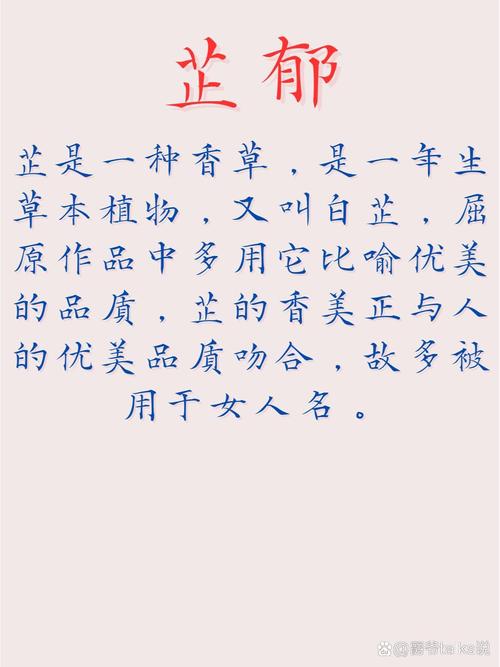 芷郁
芷是一种香草，是一年生
草本植物，又叫白芷，屈
原作品中多用它比喻优美
的品质，芷的香美正与人
的优美品质吻合，故多被
用于女人名。